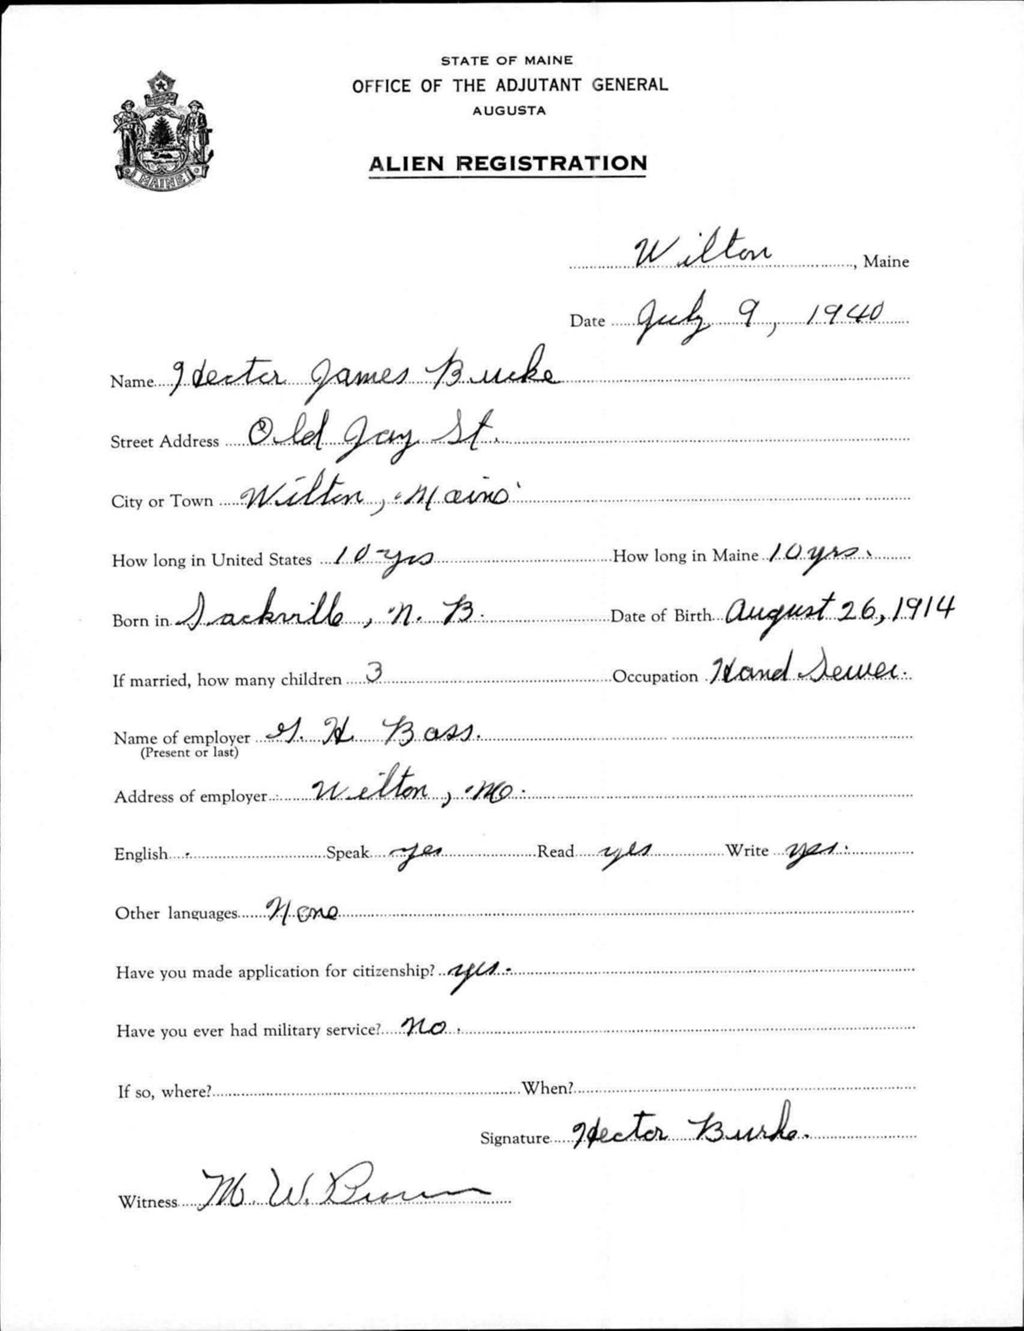 STATE OF MAINE
OFFICE OF THE ADJUTANT GENERAL
AUGUSTA
MAINE
ALIEN REGISTRATION
Wilton, Maine
Date July 9, 1940
Name Hector James Burke
Street Address Old Jay St.
City or Town Wilton, Maine
How long in United States 10 yrs How long in Maine 10 yrs.
Born in Sackville, N. B. Date of Birth August 26, 1914
If married, how many children 3 Occupation Hand Sewer.
Name of employer G. H. Bass.
(Present or last)
Address of employer Wilton, Me.
English Speak yes Read yes Write yes.
Other languages None
Have you made application for citizenship? yes.
Have you ever had military service? No.
If so, where? When?
Signature Hector Burke.
Witness M. W. Brown